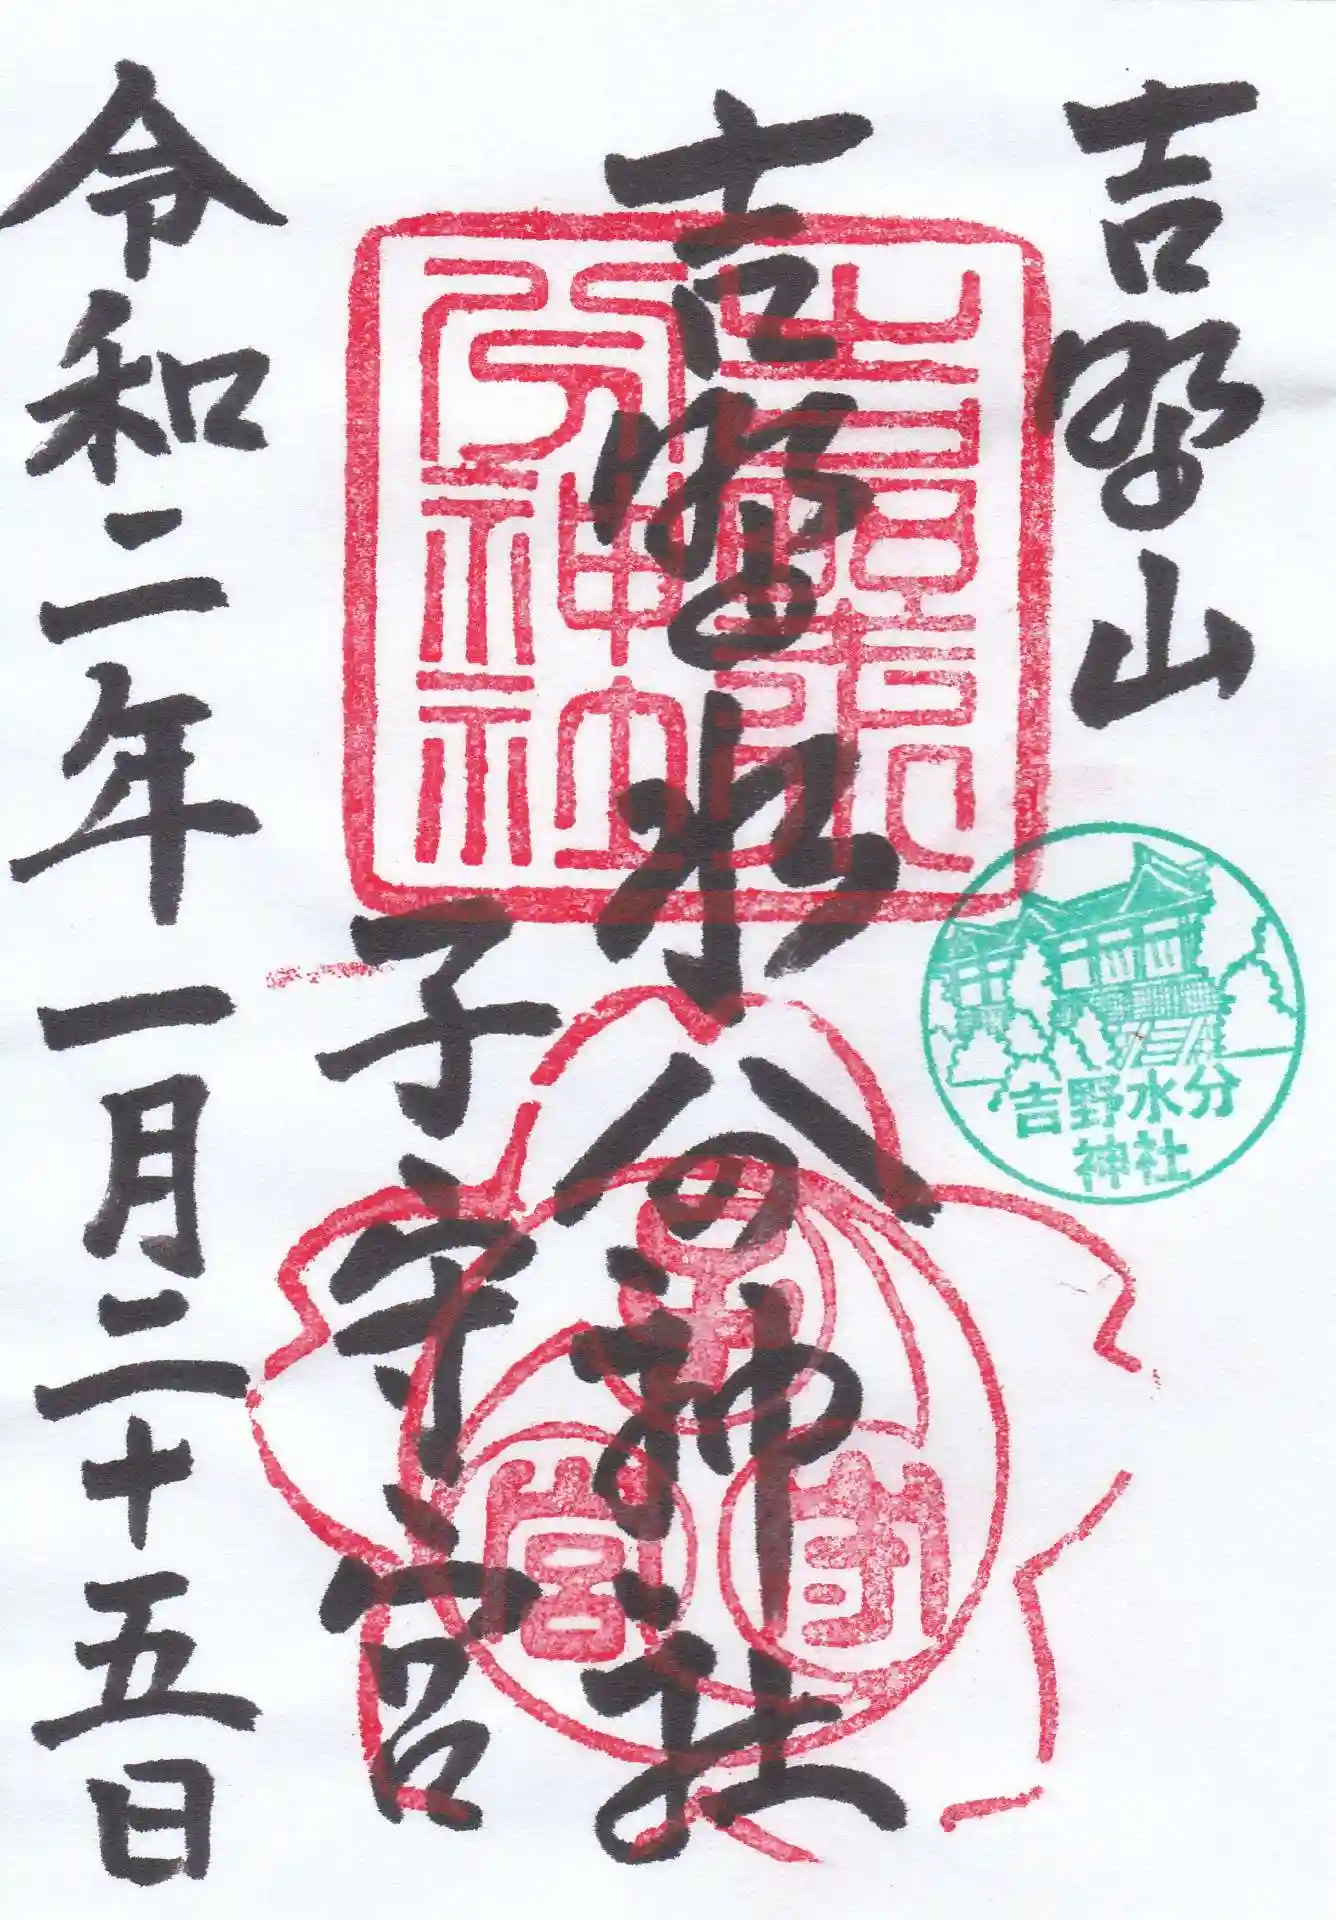 吉野山
吉野水分神社
子守宮
令和二年一月二十五日
吉野水分
神社
子
守
宮